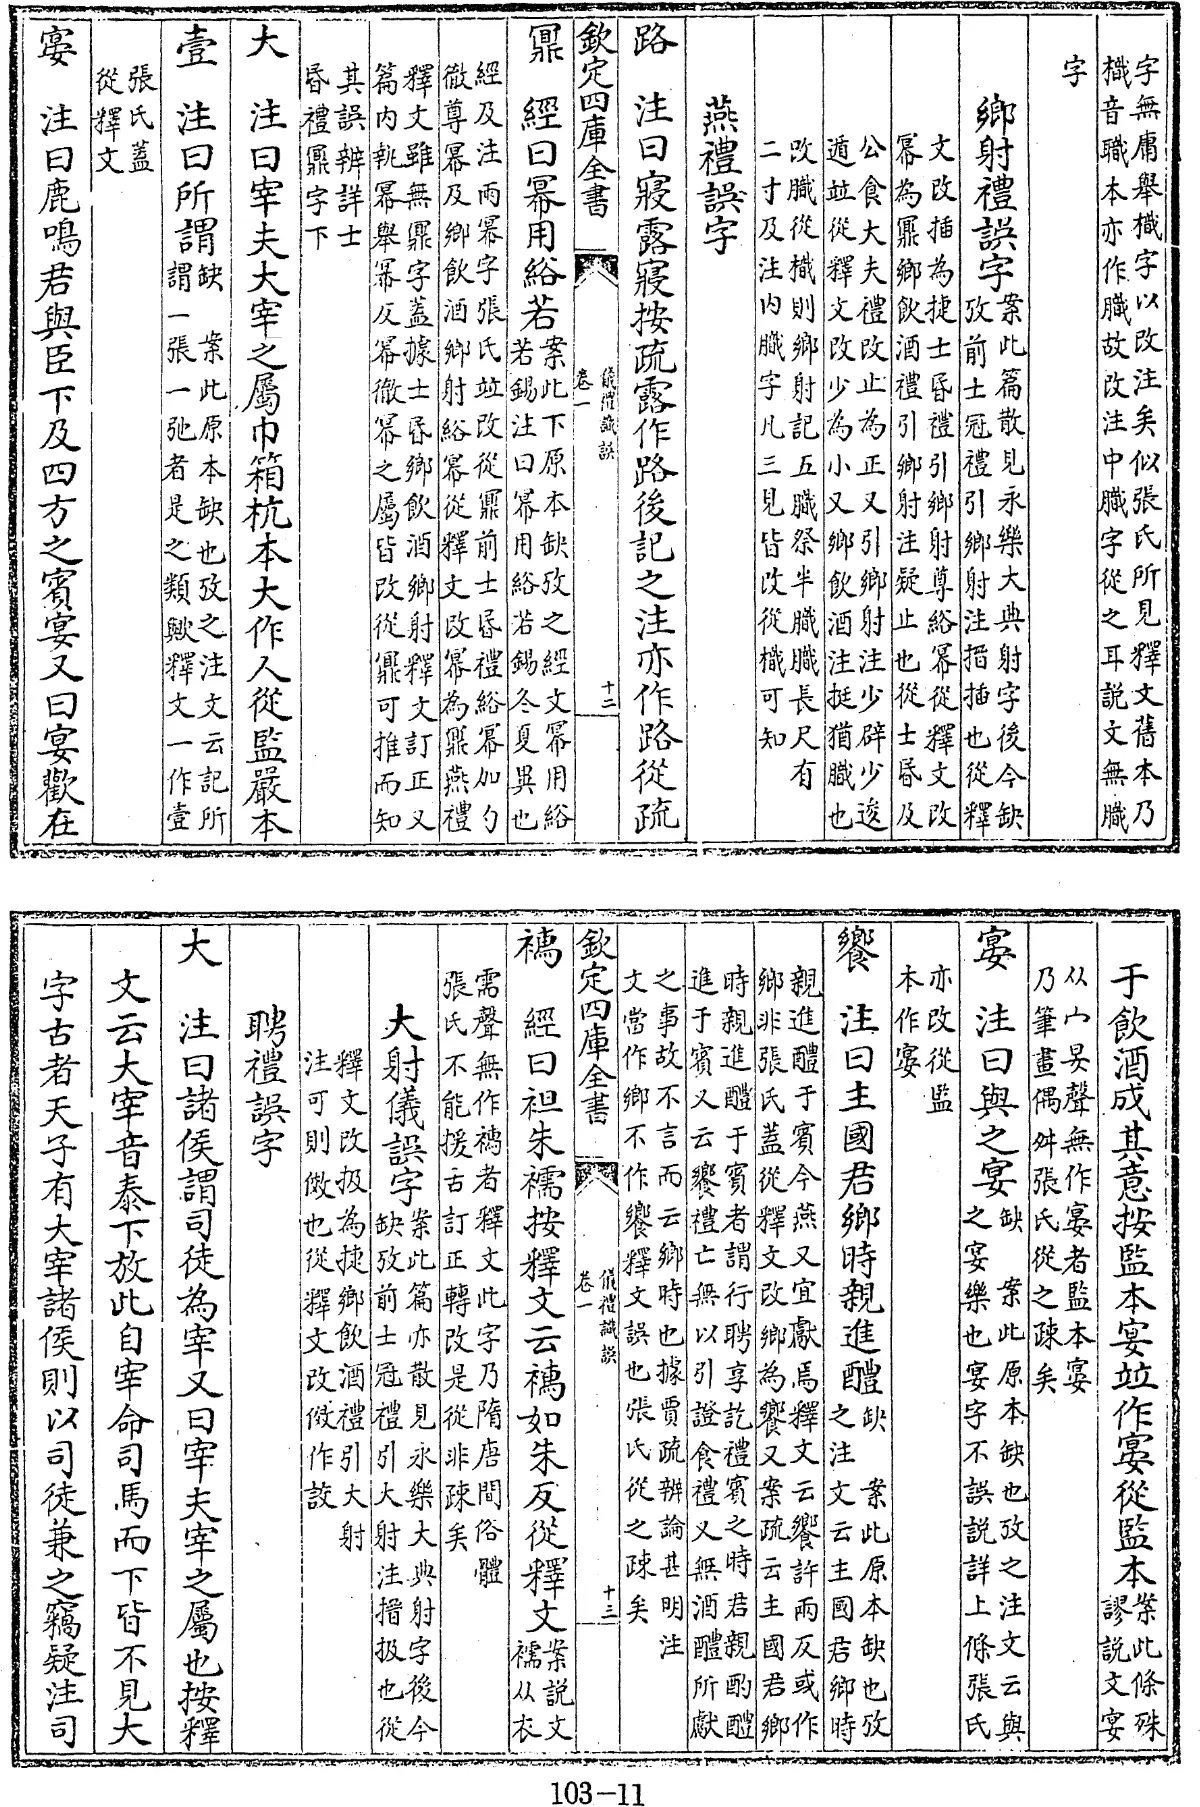 字無庸舉樴字以改注矣似張氏所見釋文舊本乃
樴音職本亦作膱故改注中膱字從之耳說文無膱
字
鄉射禮誤字
案此篇散見永樂大典射字後今缺
攷前士冠禮引鄉射注搢插也從釋
文改插為捷士昏禮引鄉射尊綌冪從釋文改
冪為鼏鄉飲酒禮引鄉射注疑止也從士昏及
公食大夫禮改止為正又引鄉射注少辟少逡
遁竝從釋文改少為小又鄉飲酒注挺猶膱也
改膱從樴則鄉射記五膱祭半膱膱長尺有
二寸及注內膱字凡三見皆改從樴可知
燕禮誤字
路 注曰寢露寢按疏露作路後記之注亦作路從疏
欽定四庫全書 儀禮識誤 卷一 十二
鼏 經曰冪用綌若
案此下原本缺攷之經文冪用綌
若錫注曰冪用綌若錫冬夏異也
經及注兩冪字張氏竝改從鼏前士昏禮綌冪加勺
徹尊冪及鄉飲酒鄉射綌冪從釋文改冪為鼏燕禮
釋文雖無鼏字蓋據士昏鄉飲酒鄉射釋文訂正又
篇內執冪舉冪反冪徹冪之屬皆改從鼏可推而知
其誤辨詳士
昏禮鼏字下
大 注曰宰夫大宰之屬巾箱杭本大作人從監嚴本
壹 注曰所謂
缺 案此原本缺也攷之注文云記所
謂一張一弛者是之類歟釋文一作壹
張氏蓋
從釋文
宴 注曰鹿鳴君與臣下及四方之賓宴又曰宴歡在
于飲酒成其意按監本宴竝作宴從監本
案此條殊
謬說文宴
从宀妟聲無作宴者監本宴
乃筆畫偶舛張氏從之疎矣
宴 注曰與之宴
缺 案此原本缺也攷之注文云與
之宴樂也宴字不誤說詳上條張氏
亦改從監
本作宴
饗 注曰主國君鄉時親進醴
缺 案此原本缺也攷
之注文云主國君鄉時
親進醴于賓今燕又宜獻焉釋文云饗許兩反或作
鄉非張氏蓋從釋文改鄉為饗又案疏云主國君鄉
時親進醴于賓者謂行聘享訖禮賓之時君親酌醴
進于賓又云饗禮亡無以引證食禮又無酒醴所獻
之事故不言而云鄉時也據賈疏辨論甚明注
文當作鄉不作饗釋文誤也張氏從之疎矣
欽定四庫全書 儀禮識誤 卷一 十三
襦 經曰袒朱襦按釋文云襦如朱反從釋文
案說文
襦从衣
需聲無作襦者釋文此字乃隋唐間俗體
張氏不能援古訂正轉改是從非疎矣
大射儀誤字
案此篇亦散見永樂大典射字後今
缺攷前士冠禮引大射注搢扱也從
釋文改扱為捷鄉飲酒禮引大射
注可則倣也從釋文改倣作詨
聘禮誤字
大 注曰諸侯謂司徒為宰又曰宰夫宰之屬也按釋
文云大宰音泰下放此自宰命司馬而下皆不見大
字古者天子有大宰諸侯則以司徒兼之竊疑注司
103-11